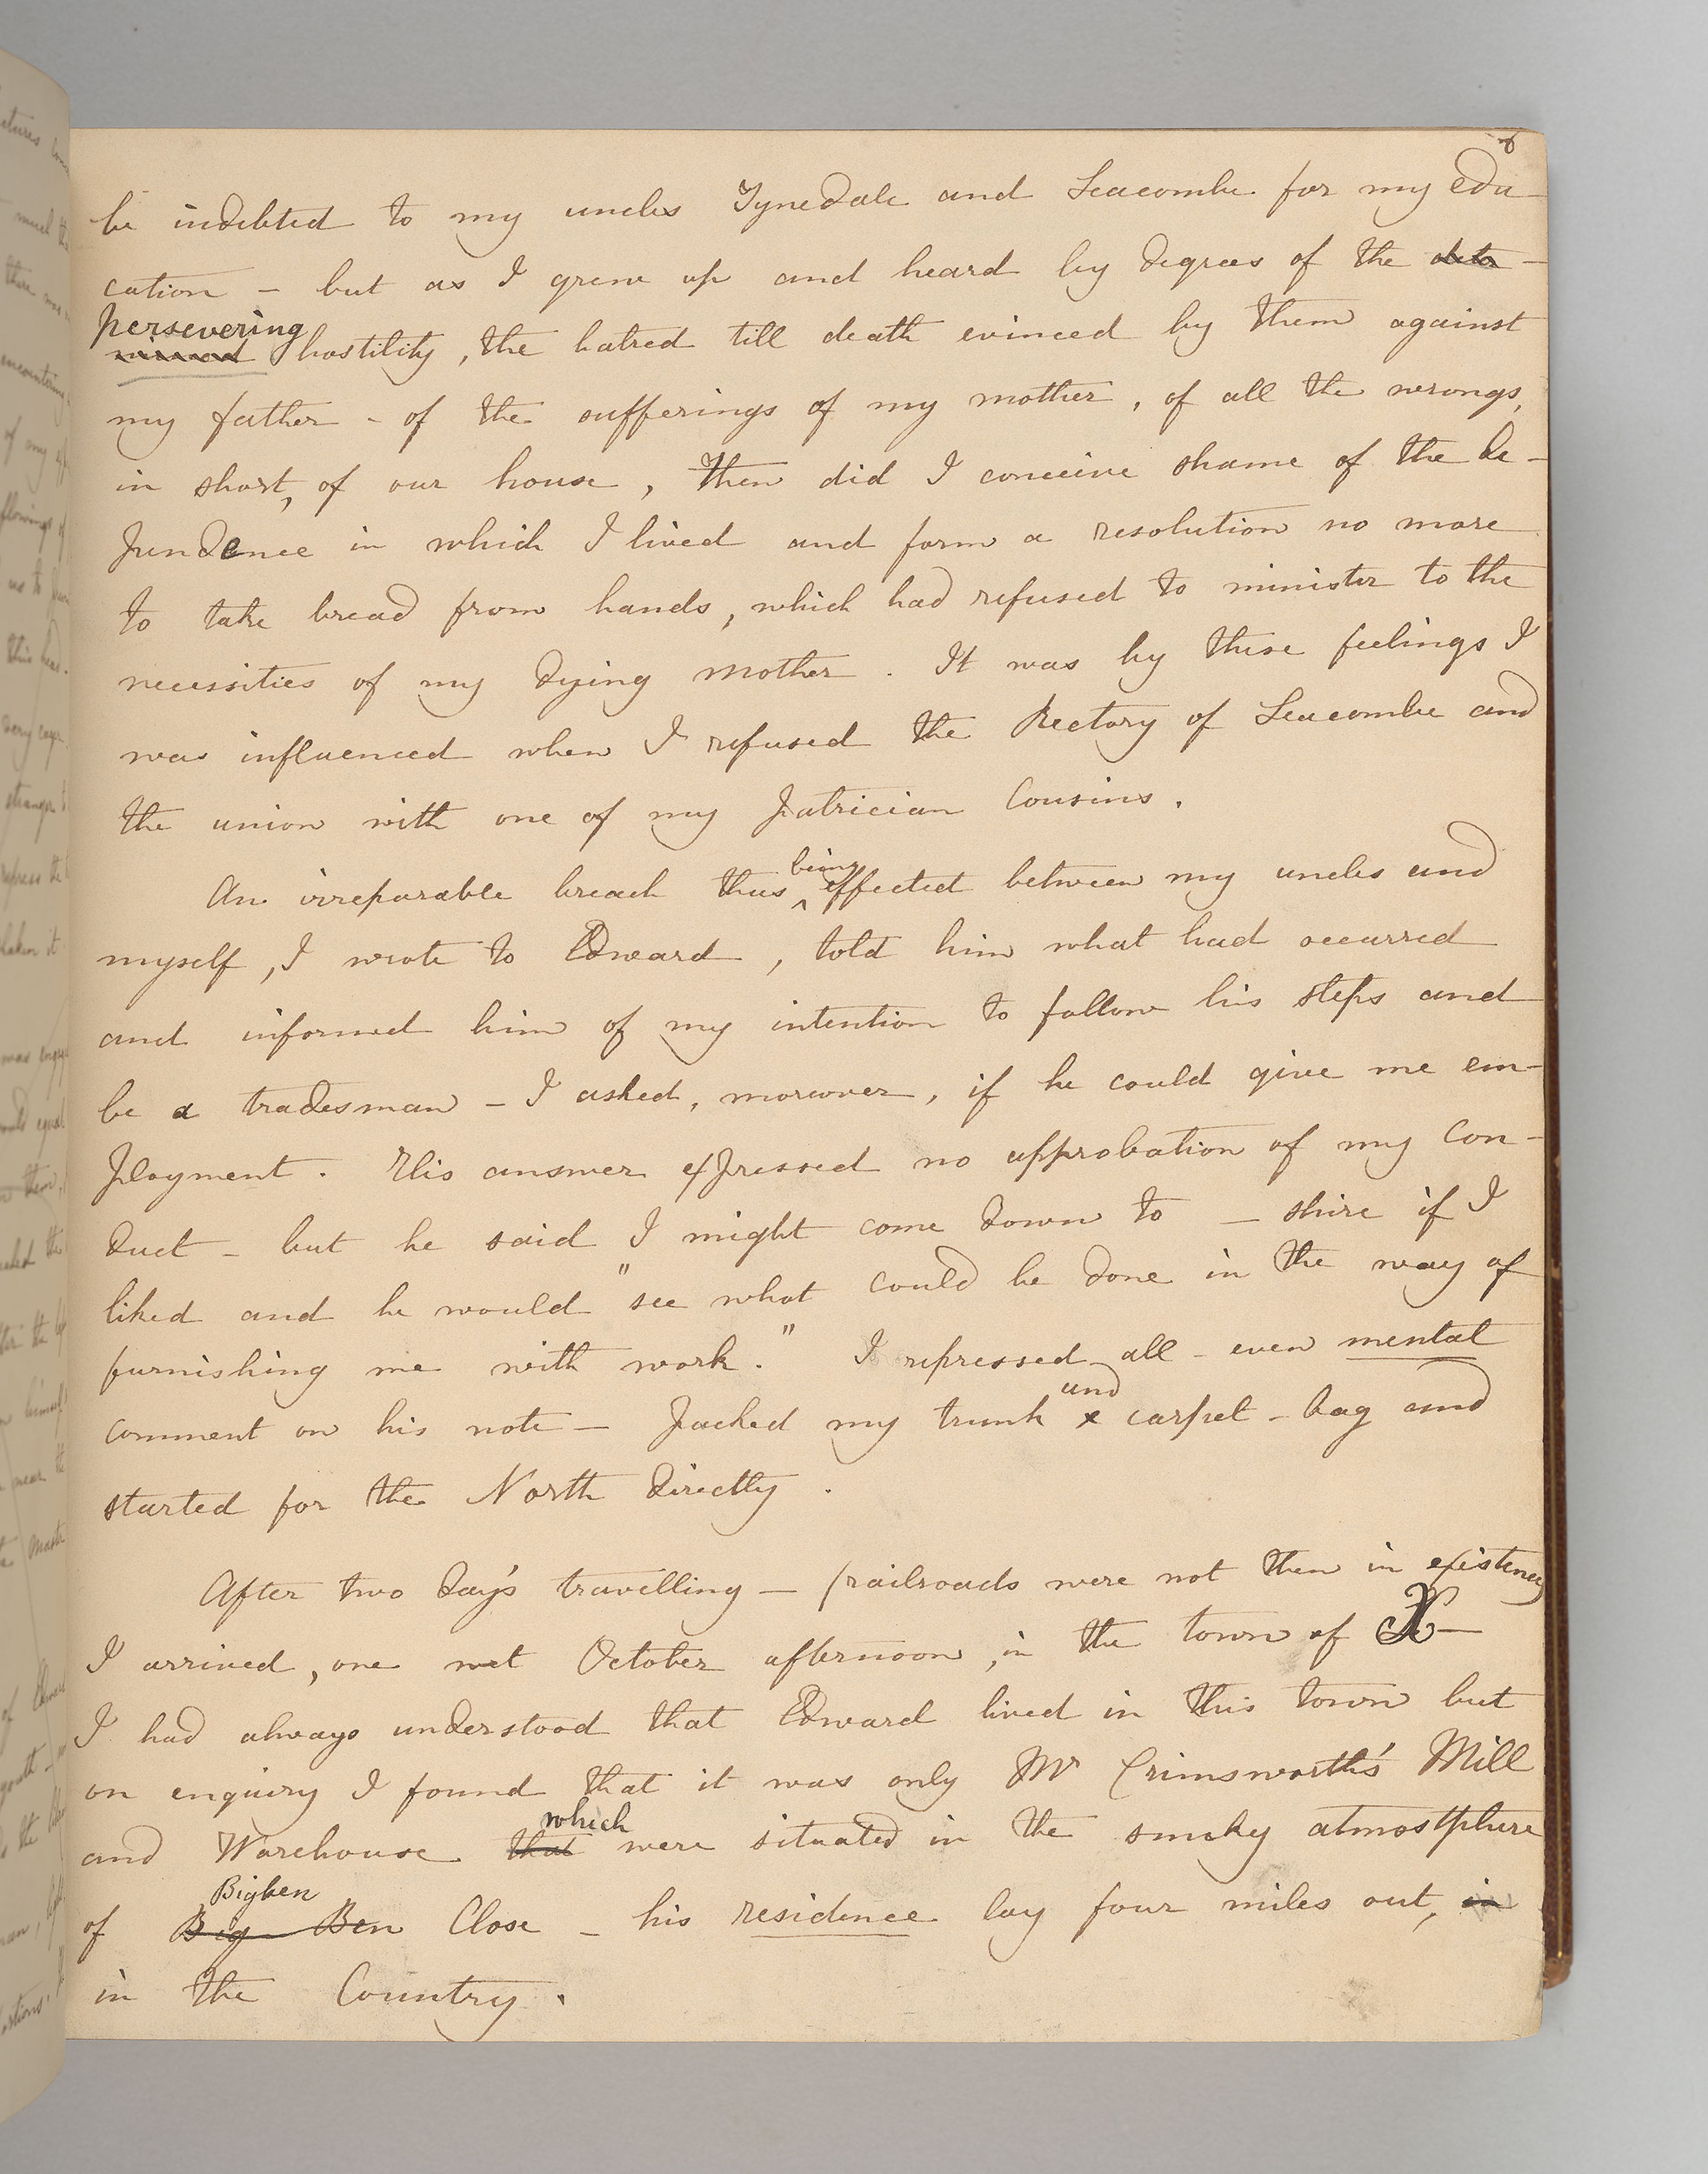 6
be indebted to my uncles Tynedale and Seacombe for my edu-
cation - but as I grew up and heard by degrees of the deter-
persevering
mined hostility, the hatred till death evinced by them against
my father - of the sufferings of my mother, of all the wrongs,
in short, of our house, then did I conceive shame of the de-
pendence in which I lived and form a resolution no more
to take bread from hands, which had refused to minister to the
necessities of my dying mother. It was by these feelings I
was influenced when I refused the Rectory of Seacombe and
the union with one of my patrician Cousins.
being
An irreparable breach thus ^ effected between my uncles and
myself, I wrote to Edward, told him what had occurred
and informed him of my intention to follow his steps and
be a tradesman - I asked, moreover, if he could give me em-
ployment. His answer expressed no approbation of my Con-
duct - but he said I might come down to — shire if I
liked and he would "see what could be done in the way of
furnishing me with work." I repressed all - even mental
and
comment on his note — packed my trunk & carpet-bag and
started for the North directly.
After two day's travelling — (railroads were not then in existence)
I arrived, one wet October afternoon, in the town of X—
I had always understood that Edward lived in this town but
on enquiry I found that it was only Mr Crimsworth's Mill
which
and Warehouse that were situated in the smoky atmostphere
Bigben
of Big Ben Close - his residence lay four miles out, in
in the Country.